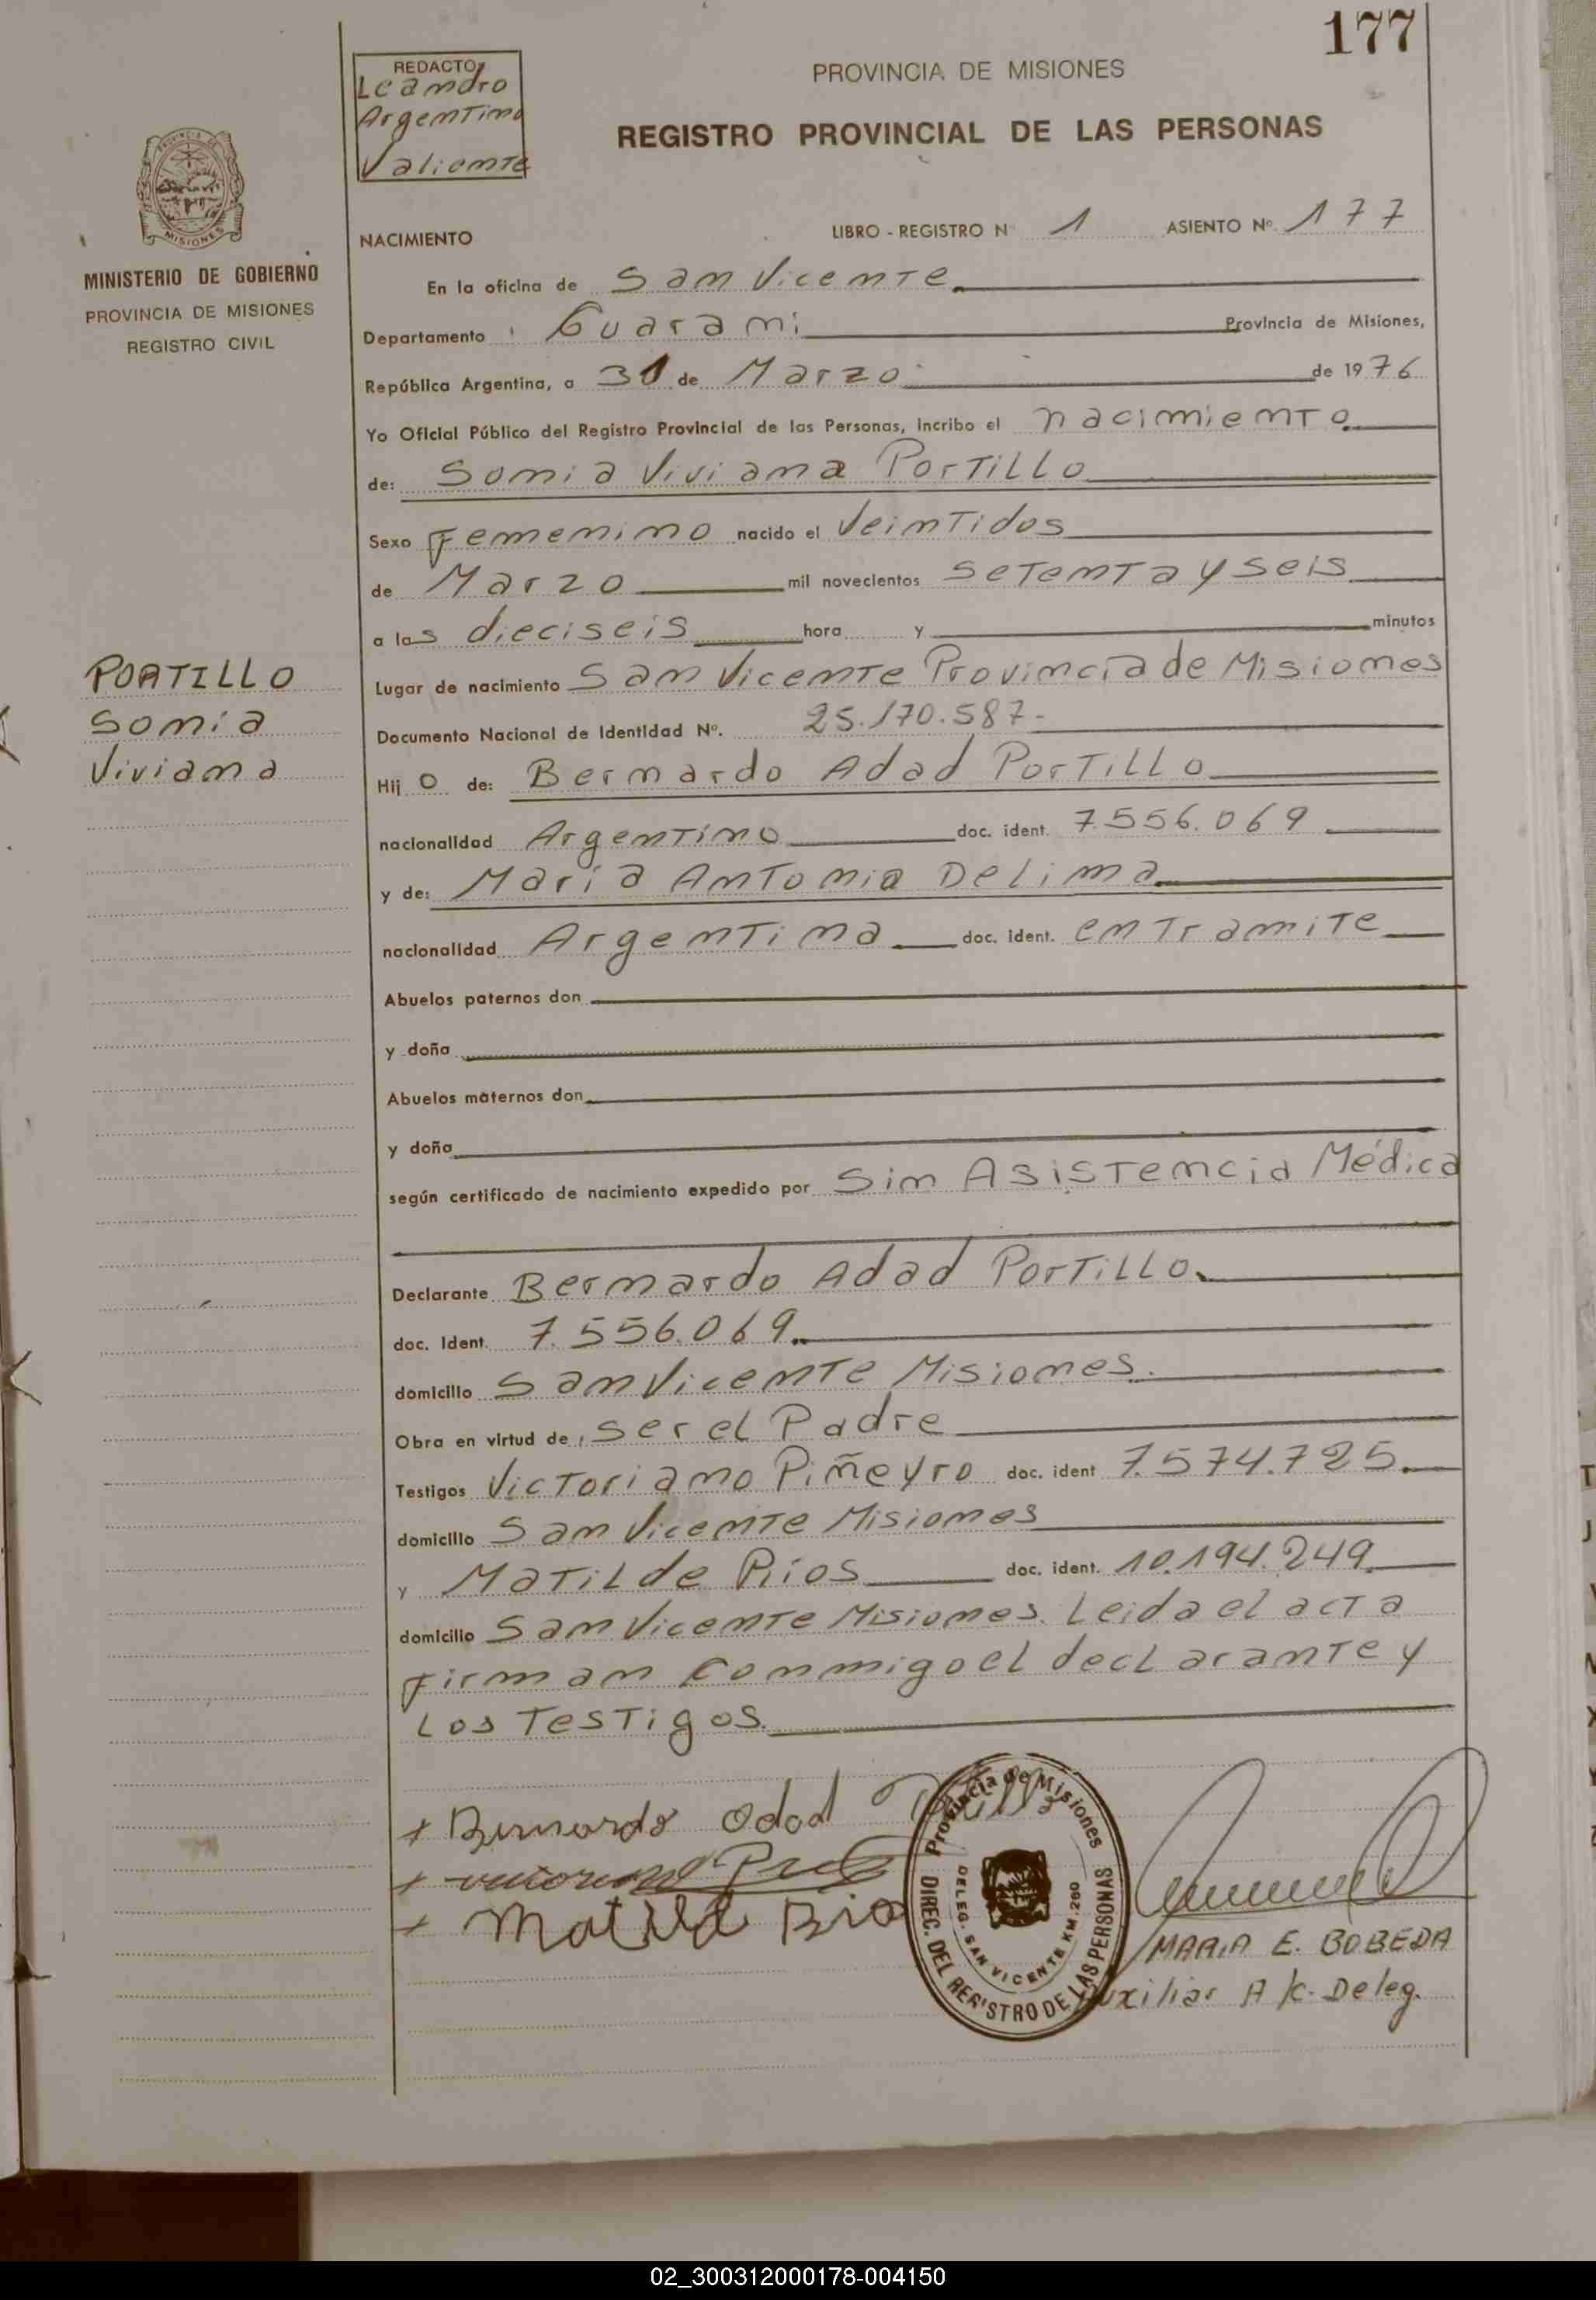 177
REDACTO
Leandro
Argentino
Valiente
PROVINCIA DE MISIONES
REGISTRO PROVINCIAL DE LAS PERSONAS
MISIONES
MINISTERIO DE GOBIERNO
PROVINCIA DE MISIONES
REGISTRO CIVIL
PORTILLO
Sonia
Viviana
NACIMIENTO LIBRO - REGISTRO Nº 1 ASIENTO Nº. 177
En la oficina de San Vicente
Departamento Guarani Provincia de Misiones,
República Argentina, a 31 de Marzo de 1976
Yo Oficial Público del Registro Provincial de las Personas, incribo el nacimiento
de: Sonia Viviana Portillo
Sexo Femenino nacido el Veintidos
de Marzo mil novecientos setenta y seis
a las dieciseis hora y minutos
Lugar de nacimiento San Vicente Provincia de Misiones
Documento Nacional de Identidad Nº. 25.170.587-
Hij o de: Bernardo Adad Portillo
nacionalidad Argentino doc. ident. 7.556.069
y de: María Antonia Delima
nacionalidad Argentina doc. ident. en Tramite
Abuelos paternos don
y doña
Abuelos maternos don
y doña
según certificado de nacimiento expedido por Sin Asistencia Médica
Declarante Bernardo Adad Portillo.
doc. Ident. 7.556.069.
domicilio San Vicente Misiones.
Obra en virtud de ser el Padre
Testigos Victoriano Piñeyro doc. ident 7.574.725.
domicilio San Vicente Misiones
y Matilde Ríos doc. ident. 10.194.249.
domicilio San Vicente Misiones. Leida el acta
firman conmigo el declarante y
los Testigos.
+ Bernardo Odad
+
+ Matild Rio
Provincia de Misiones
DIREC. DEL REGISTRO DE LAS PERSONAS
DELEG. SAN VICENTE KM. 260
MARIA E. BOBEDA
Auxiliar A/c. Deleg.
02_300312000178-004150